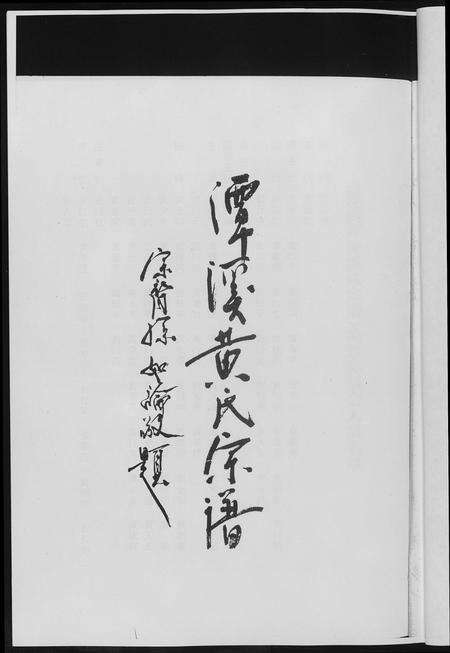 潭溪黄氏宗谱
宗裔孫如論敬題